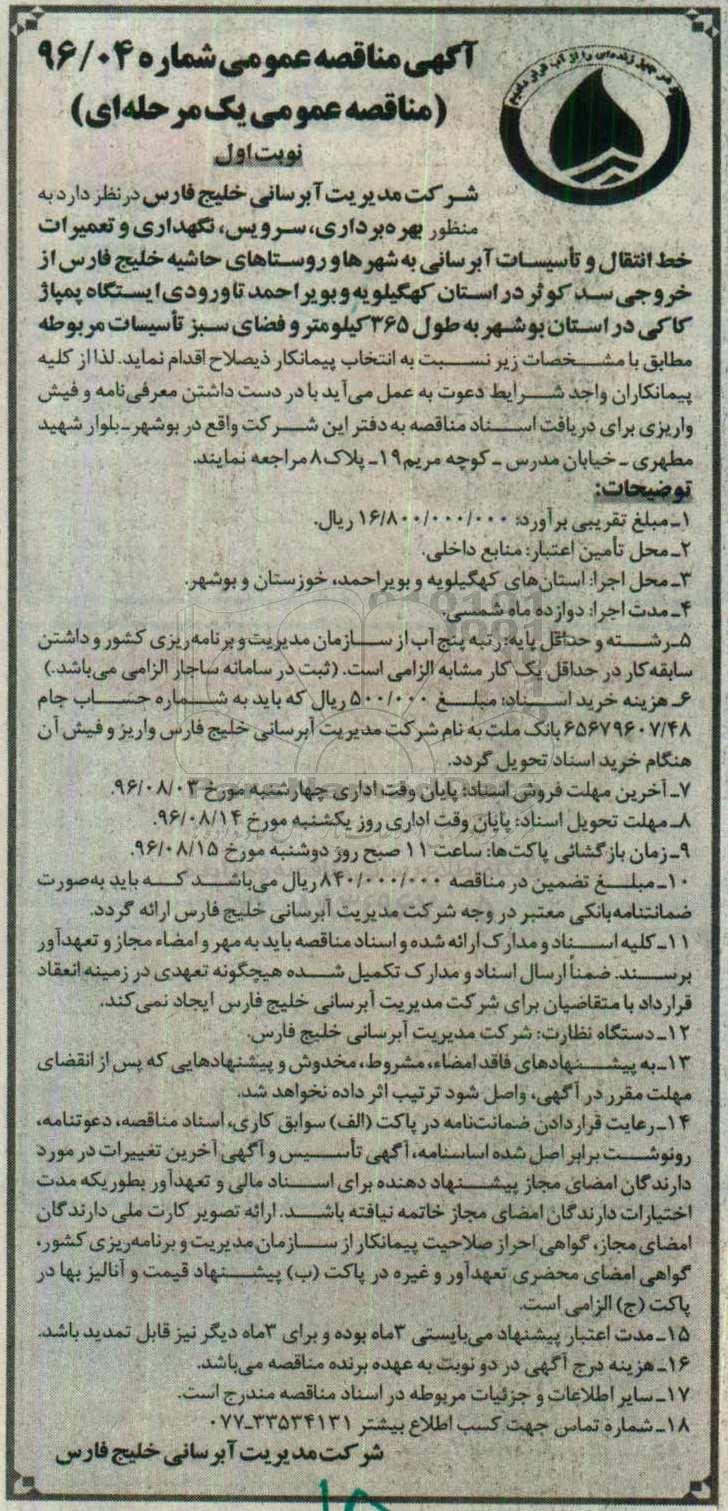 و من الماء کل شیء حی
آگهی مناقصه عمومی شماره ۹۶/۰۴
(مناقصه عمومی یک مرحله‌ای)
نوبت اول
شرکت مدیریت آبرسانی خلیج فارس در نظر دارد به
منظور بهره‌برداری، سرویس، نگهداری و تعمیرات
خط انتقال و تأسیسات آبرسانی به شهرها و روستاهای حاشیه خلیج فارس از
خروجی سد کوثر در استان کهگیلویه و بویراحمد تا ورودی ایستگاه پمپاژ
کاکی در استان بوشهر به طول ۳۶۵ کیلومتر و فضای سبز تأسیسات مربوطه
مطابق با مشخصات زیر نسبت به انتخاب پیمانکار ذیصلاح اقدام نماید. لذا از کلیه
پیمانکاران واجد شرایط دعوت به عمل می‌آید با در دست داشتن معرفی‌نامه و فیش
واریزی برای دریافت اسناد مناقصه به دفتر این شرکت واقع در بوشهر ـ بلوار شهید
مطهری ـ خیابان مدرس ـ کوچه مریم ۱۹ـ پلاک ۸ مراجعه نمایند.
توضیحات:
۱ـ مبلغ تقریبی برآورد: ۱۶/۸۰۰/۰۰۰/۰۰۰ ریال.
۲ـ محل تأمین اعتبار: منابع داخلی.
۳ـ محل اجرا: استان‌های کهگیلویه و بویراحمد، خوزستان و بوشهر.
۴ـ مدت اجرا: دوازده ماه شمسی.
۵ـ رشته و حداقل پایه: رتبه پنج آب از سازمان مدیریت و برنامه‌ریزی کشور و داشتن
سابقه کار در حداقل یک کار مشابه الزامی است. (ثبت در سامانه ساجار الزامی می‌باشد.)
۶ـ هزینه خرید اسناد: مبلغ ۵۰۰/۰۰۰ ریال که باید به شماره حساب جام
۶۵۶۷۹۶۰۷/۴۸ بانک ملت به نام شرکت مدیریت آبرسانی خلیج فارس واریز و فیش آن
هنگام خرید اسناد تحویل گردد.
۷ـ آخرین مهلت فروش اسناد: پایان وقت اداری چهارشنبه مورخ ۹۶/۰۸/۰۳.
۸ـ مهلت تحویل اسناد: پایان وقت اداری روز یکشنبه مورخ ۹۶/۰۸/۱۴.
۹ـ زمان بازگشائی پاکت‌ها: ساعت ۱۱ صبح روز دوشنبه مورخ ۹۶/۰۸/۱۵.
۱۰ـ مبلغ تضمین در مناقصه ۸۴۰/۰۰۰/۰۰۰ ریال می‌باشد که باید به‌صورت
ضمانتنامه بانکی معتبر در وجه شرکت مدیریت آبرسانی خلیج فارس ارائه گردد.
۱۱ـ کلیه اسناد و مدارک ارائه شده و اسناد مناقصه باید به مهر و امضاء مجاز و تعهدآور
برسند. ضمناً ارسال اسناد و مدارک تکمیل شده هیچگونه تعهدی در زمینه انعقاد
قرارداد با متقاضیان برای شرکت مدیریت آبرسانی خلیج فارس ایجاد نمی‌کند.
۱۲ـ دستگاه نظارت: شرکت مدیریت آبرسانی خلیج فارس.
۱۳ـ به پیشنهادهای فاقد امضاء، مشروط، مخدوش و پیشنهادهایی که پس از انقضای
مهلت مقرر در آگهی، واصل شود ترتیب اثر داده نخواهد شد.
۱۴ـ رعایت قراردادن ضمانت‌نامه در پاکت (الف) سوابق کاری، اسناد مناقصه، دعوتنامه،
رونوشت برابر اصل شده اساسنامه، آگهی تأسیس و آگهی آخرین تغییرات در مورد
دارندگان امضای مجاز پیشنهاد دهنده برای اسناد مالی و تعهدآور بطوریکه مدت
اختیارات دارندگان امضای مجاز خاتمه نیافته باشد. ارائه تصویر کارت ملی دارندگان
امضای مجاز، گواهی احراز صلاحیت پیمانکار از سازمان مدیریت و برنامه‌ریزی کشور،
گواهی امضای محضری تعهدآور و غیره در پاکت (ب) پیشنهاد قیمت و آنالیز بها در
پاکت (ج) الزامی است.
۱۵ـ مدت اعتبار پیشنهاد می‌بایستی ۳ماه بوده و برای ۳ماه دیگر نیز قابل تمدید باشد.
۱۶ـ هزینه درج آگهی در دو نوبت به عهده برنده مناقصه می‌باشد.
۱۷ـ سایر اطلاعات و جزئیات مربوطه در اسناد مناقصه مندرج است.
۱۸ـ شماره تماس جهت کسب اطلاع بیشتر ۳۳۵۳۴۱۳۱ـ۰۷۷
شرکت مدیریت آبرسانی خلیج فارس